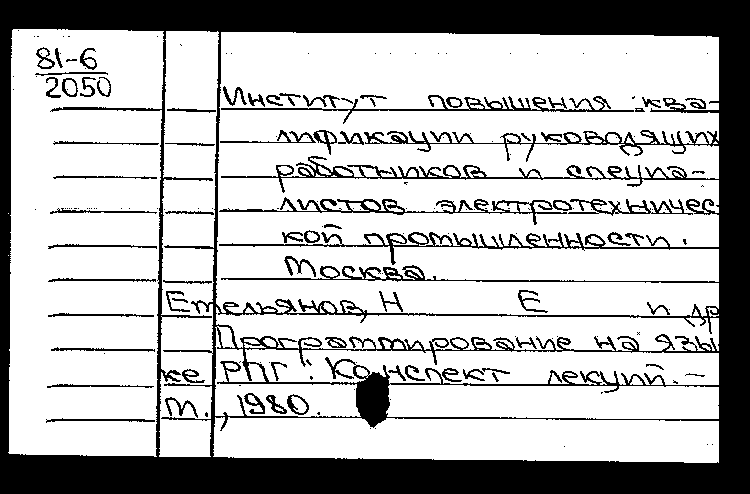 81-6
2050
Институт повышения ква-
лификации руководящих
работников и специа-
листов электротехничес-
кой промышленности.
Москва.
Емельянов, Н Е и др
Программирование на язы
ке РПГ: Конспект лекций. –
М., 1980.